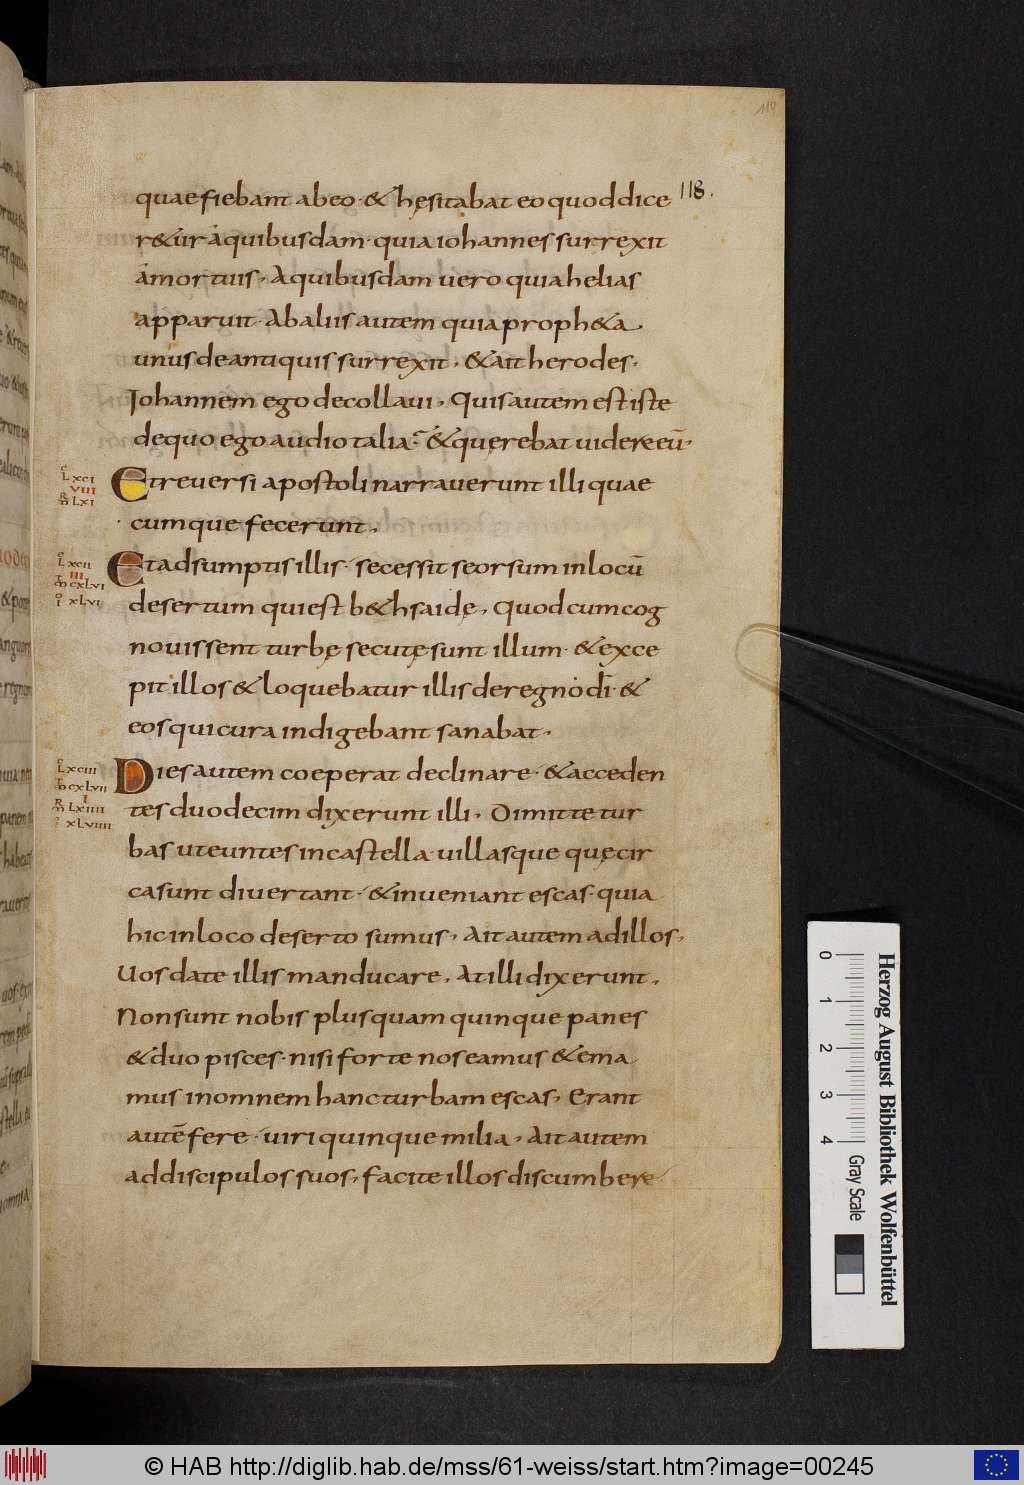 119
118.
quae fiebant abeo · & hęsitabat eo quod dice
r&ur aquibusdam · quia iohannes surrexit
amortuis, Aquibusdam uero quia helias
apparuit · Abaliis autem quia proph&a
unus de antiquis surrexit, &ait herodes,
Iohannem ego decollaui, Quis autem est iste
dequo ego audio talia? &quęrebat uidere eū,
Etreuersi apostoli narrauerunt illi quae
cumque fecerunt,
Etadsumptis illis · secessit seorsum inlocū
desertum qui est b&hsaidę, Quod cum cog
nouissent turbę secutę sunt illum · &exce
pit illos & loquebatur illis deregno dī · &
eos qui cura indigebant sanabat,
Dies autem coeperat declinare · &acceden
tes duodecim dixerunt illi, Dimitte tur
bas uteuntes incastella uillasque quęcir
casunt diuertant · &inueniant escas · quia
hic inloco deserto sumus, Ait autem adillos,
Uos date illis manducare, Atilli dixerunt,
Non sunt nobis plus quam quinque panes
&duo pisces · nisi forte nos eamus &ema
mus inomnem hanc turbam escas, Erant
autē fere · uiri quinque milia, Ait autem
addiscipulos suos, facite illos discumbere
Lxci
VIII
Lxi
Lxcii
III
cxLvi
xLvi
Lxciii
cxLvii
I
Lxiiii
xLviiii
0 1 2 3 4
Gray Scale
Herzog August Bibliothek Wolfenbüttel
© HAB http://diglib.hab.de/mss/61-weiss/start.htm?image=00245